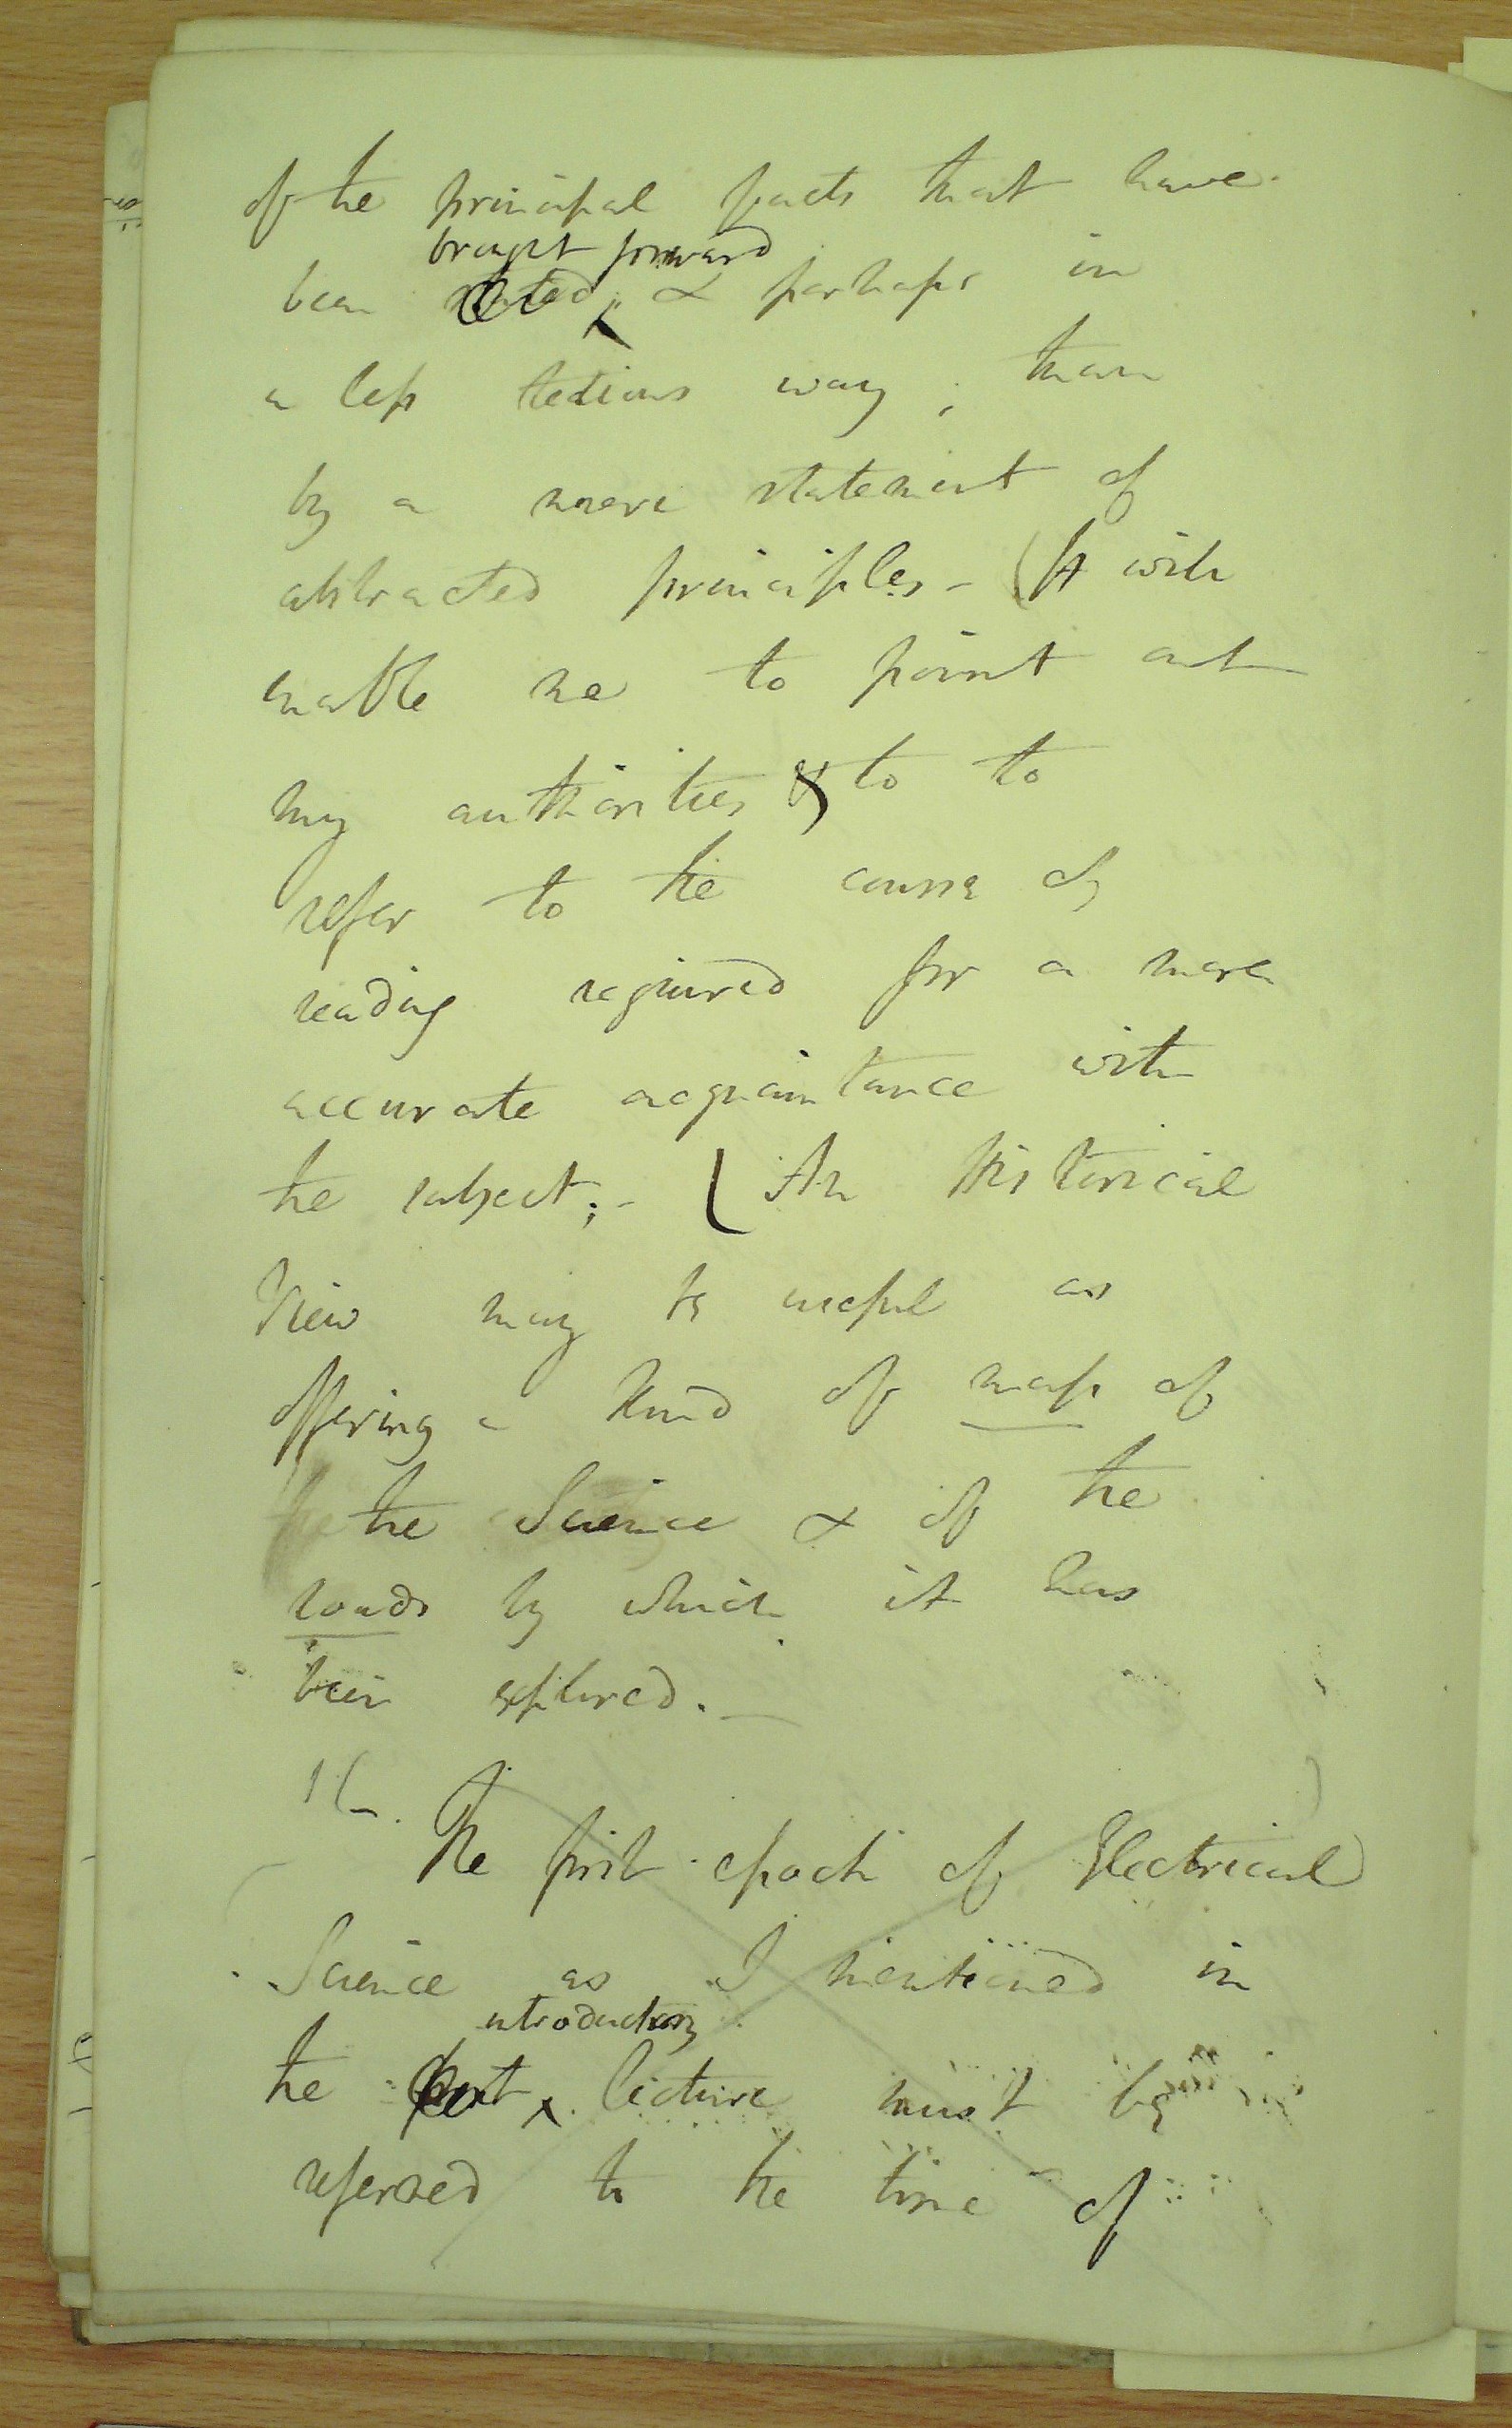 of the principal facts that have
brought forward
been stated, & perhaps in
a less tedious way, than
by a mere statement of
abstracted principles - (It will
enable me to point out
my authorities & to to
refer to the course of
reading required for a more
accurate acquaintance with
the subject; - ( An Historical
View may be useful as
offering a kind of map of
the the Science & of the
roads by which it has
been explored. —
The first epoch of Electrical
Science as I mentioned in
introductory
the lecture must be
referred to the time of